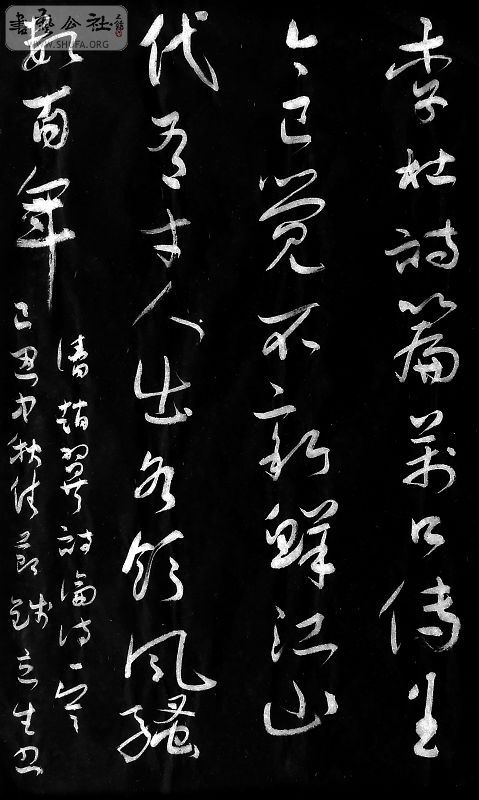 書藝公社
WWW.SHUFA.ORG
李杜詩篇萬口傳至
今已觉不新鲜江山
代有才人出各领风骚
数百年
清趙翼詩論詩一首
己丑中秋佳節